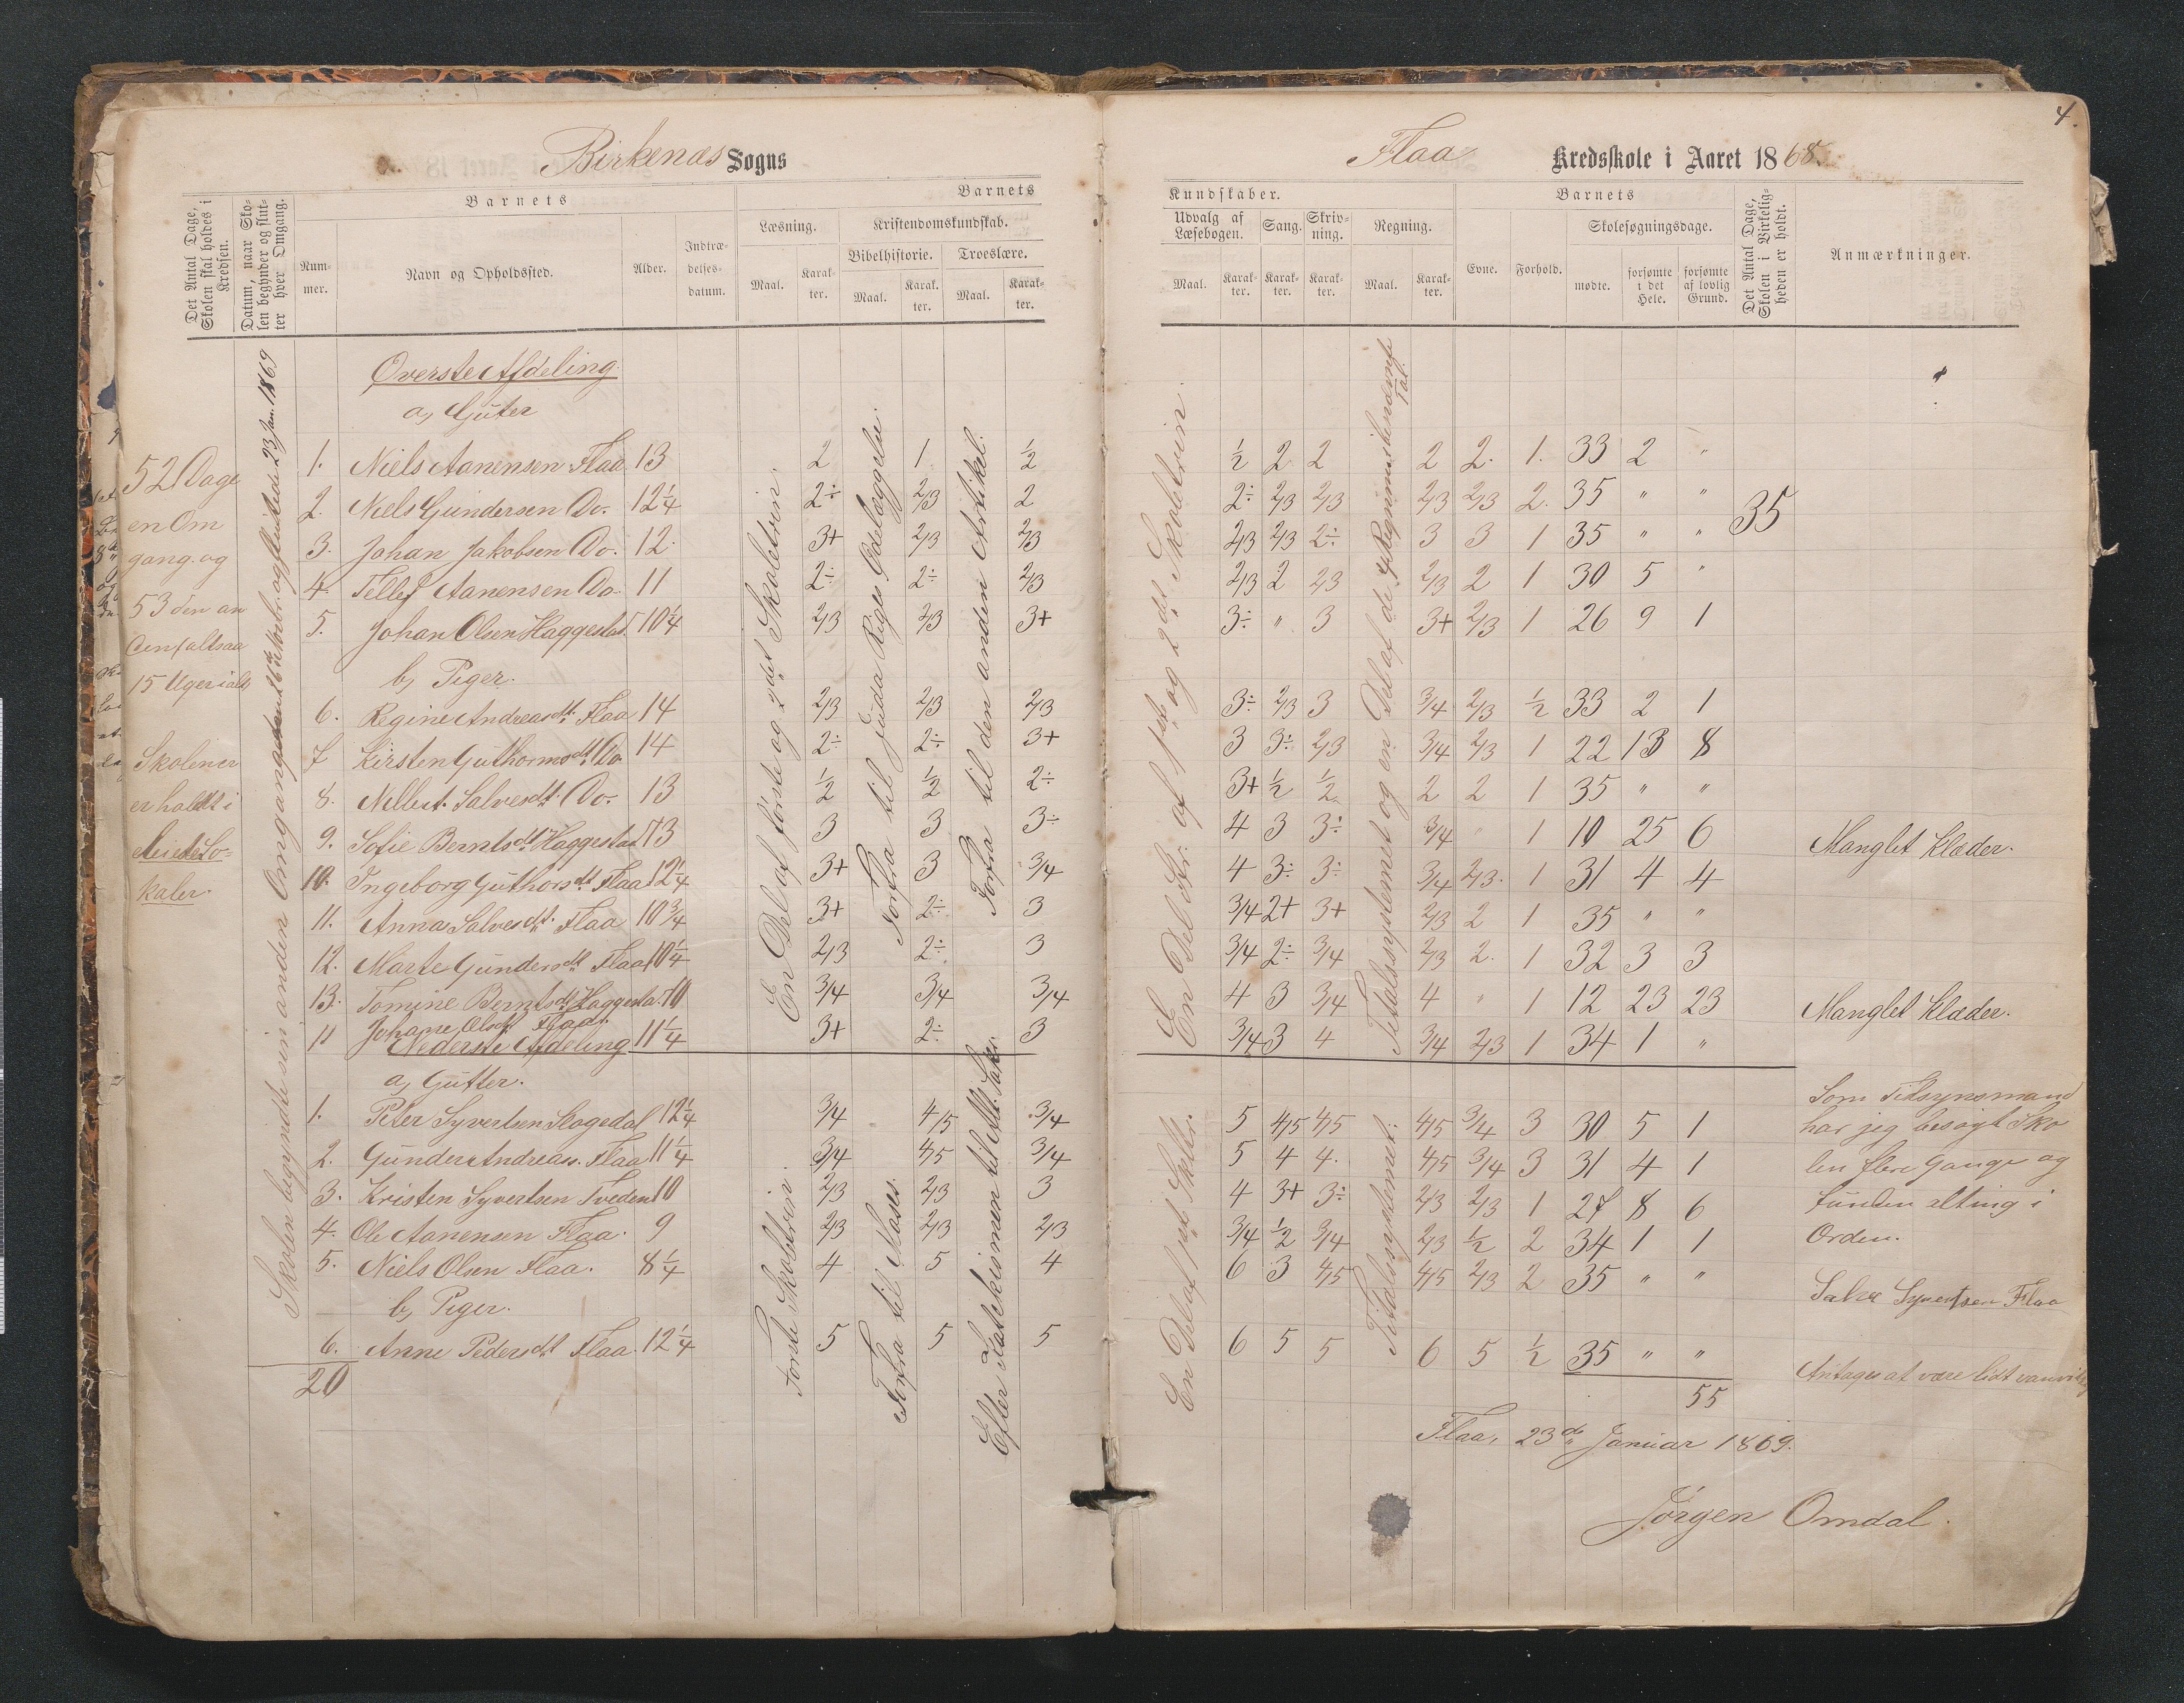 4.
Birkenæs Sogns
Flaa Kredsskole i Aaret 1868.
Det Antal Dage, Skolen skal holdes i Kredsen.
Datum, naar Skolen begynder og slutter hver Omgang.
Barnets
Nummer.
Navn og Opholdssted.
Alder.
Indtrædelsesdatum.
Barnets
Læsning.
Kristendomskundskab.
Bibelhistorie. Troeslære.
Maal. Karakter. Maal. Karakter. Maal. Karakter.
Kundskaber.
Udvalg af Læsebogen. Sang. Skrivning. Regning.
Maal. Karakter. Karakter. Karakter. Maal. Karakter.
Barnets
Evne. Forhold. Skolesøgningsdage.
mødte. forsømte i det Hele. forsømte af lovlig Grund.
Det Antal Dage, Skolen i Virkeligheden er holdt.
Anmærkninger.
52 Dage
en Om
gang og
53 den an
den faltsaa
15 Uger ialt
Skolen er
er holdt i
Leiede Lo-
kaler.
Skolen begyndte sin anden Omgang den 26de Novbr. og sluttede 23 Jan. 1869
En Del af første og 2det Skoletrin.
Forfra til Juda Riges Ødelæggelse.
Forfra til den anden Artikel.
En Del Str. af 1ste og 2det Skoletrin.
Titalssystemet og en Del af de 4 Regning
Tal.
Øverste Afdeling.
a, Gutter
1. Niels Aanensen Flaa 13 2 1 ½ ½ 2 2 2 2. 1. 33 2 "
2. Niels Gundersen Do. 12¼ 2÷ 2/3 2 2÷ 2/3 2/3 2/3 2/3 2. 35 " " 35
3. Johan Jakobsen Do. 12. 3+ 2/3 2/3 2/3 2/3 2÷ 3 3 1 35 " "
4. Tellef Aanensen Do. 11 2÷ 2÷ 2/3 2/3 2 2/3 2/3 2 1 30 5 "
5. Johan Olsen Haggestad 10¼ 2/3 2/3 3+ 3÷ " 3 3+ 2/3 1 26 9 1
b, Piger.
6. Regine Andreasdt. Flaa 14 2/3 2/3 2/3 3÷ 2/3 3 3/4 2/3 ½ 33 2 1
7 Kirsten Guthormsdt. Do 14 2÷ 2÷ 3+ 3 3÷ 2/3 3/4 2/3 1 22 13 8
8. Nilbert. Salvesdt. Do. 13 ½ ½ 2÷ 3+ ½ ½ 2 2 1 35 " "
9. Sofie Berntsdt Haggestad 13 3 3 3÷ 4 3 3÷ 3/4 " 1 10 25 6 Manglet Klæder.
10. Ingeborg Guthorsdt. Flaa 12¼ 3+ 3 3/4 4 3÷ 3÷ 3/4 2/3. 1 31 4 4
11. Anna Salvesdt. Flaa 10¾ 3+ 2÷ 3 3/4 2+ 3+ 2/3 2 1 35 " "
12. Marte Gundersdt Flaa 10¼ 2/3 2÷ 3 3/4 2÷ 3/4 2/3 2. 1 32 3 3
13. Tomine Berntsdt Haggesta. 10 3/4 3/4 3/4 4 3 3/4 4 " 1 12 23 23 Manglet Klæder.
11 Johanne Olsdt Flaa. 11¼ 3+ 2÷ 3 3/4 3 4 3/4 2/3 1 34 1 "
Nederste Afdeling
a, Gutter.
Første Skoletrin.
Forfra til Moses.
Efter Katekismen til Alt. Sakr.
En Del af 1ste Skoletr.
Titalssystemet.
1. Peter Syvertsen Skogedal 12¼ 3/4 4/5 3/4 5 4/5 4/5 4/5 3/4 3 30 5 1
2. Gunder Andreass. Flaa 11¼ 3/4 4/5 3/4 5 4 4. 4/5 3/4 3 31 4 1
3. Kristen Syvertsen Tveden 10 2/3 2/3 3 4 3+ 3÷ 2/3 2/3 1 27 8 6
4. Ole Aanensen Flaa. 9 2/3 2/3 2/3 3/4 ½ 3/4 2/3 ½ 2 34 1 1
5. Niels Olsen Flaa. 8¼ 4 5 4 6 3 4/5 4/5 2/3 2 35 " "
b, Piger.
6. Anne Pedersdt Flaa. 12¼ 5 5 5 6 5 5 6 5 ½ 35 " "
20
55
Som Tilsynsmand
har jeg besøgt Sko
len flere Gange og
funden alting i
Orden.
Salve Syvertsen Flaa
Antages at være lidt vanvittig
Flaa, 23de Januar 1869.
Jørgen Omdal.